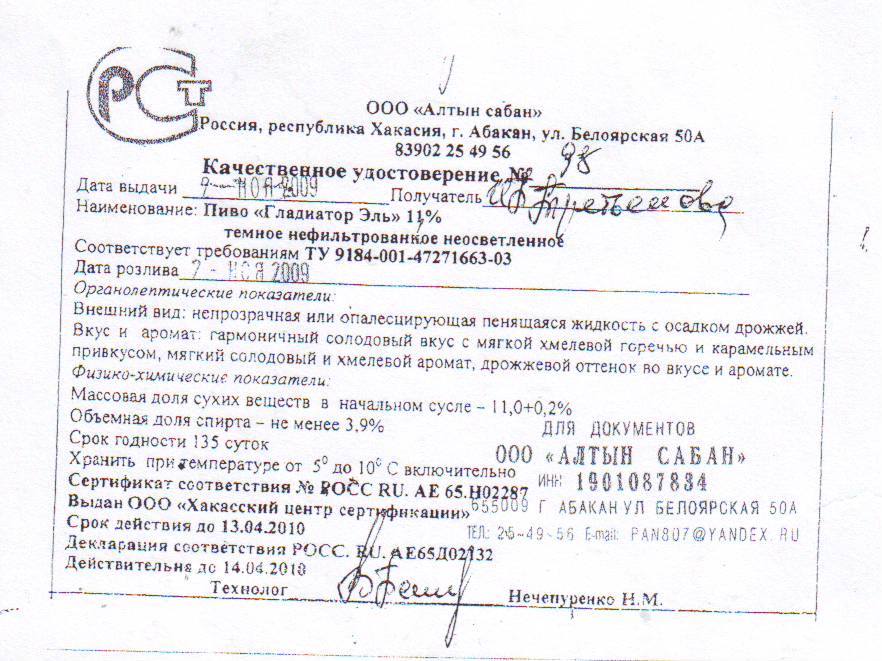 РСТ
ООО «Алтын сабан»
Россия, республика Хакасия, г. Абакан, ул. Белоярская 50А
83902 25 49 56
Качественное удостоверение №
Дата выдачи 2009 Получатель
Наименование: Пиво «Гладиатор Эль» 11%
темное нефильтрованное неосветленное
Соответствует требованиям ТУ 9184-001-47271663-03
Дата розлива 2009
Органолептические показатели:
Внешний вид: непрозрачная или опалесцирующая пенящаяся жидкость с осадком дрожжей.
Вкус и аромат: гармоничный солодовый вкус с мягкой хмелевой горечью и карамельным
привкусом, мягкий солодовый и хмелевой аромат, дрожжевой оттенок во вкусе и аромате.
Физико-химические показатели:
Массовая доля сухих веществ в начальном сусле – 11,0+0,2%
Объемная доля спирта – не менее 3,9%
Срок годности 135 суток
Хранить при температуре от 5⁰ до 10⁰ С включительно
Сертификат соответствия № РОСС RU. АЕ 65.Н02287
Выдан ООО «Хакасский центр сертификации»
Срок действия до 13.04.2010
Декларация соответствия РОСС. RU. АЕ65Д02132
Действительна до 14.04.2010
Технолог Нечепуренко Н.М.
ДЛЯ ДОКУМЕНТОВ
ООО «АЛТЫН САБАН»
ИНН 1901087834
655009 Г АБАКАН УЛ БЕЛОЯРСКАЯ 50А
ТЕЛ: 25-49-56 E-mail: PAN807@YANDEX.RU